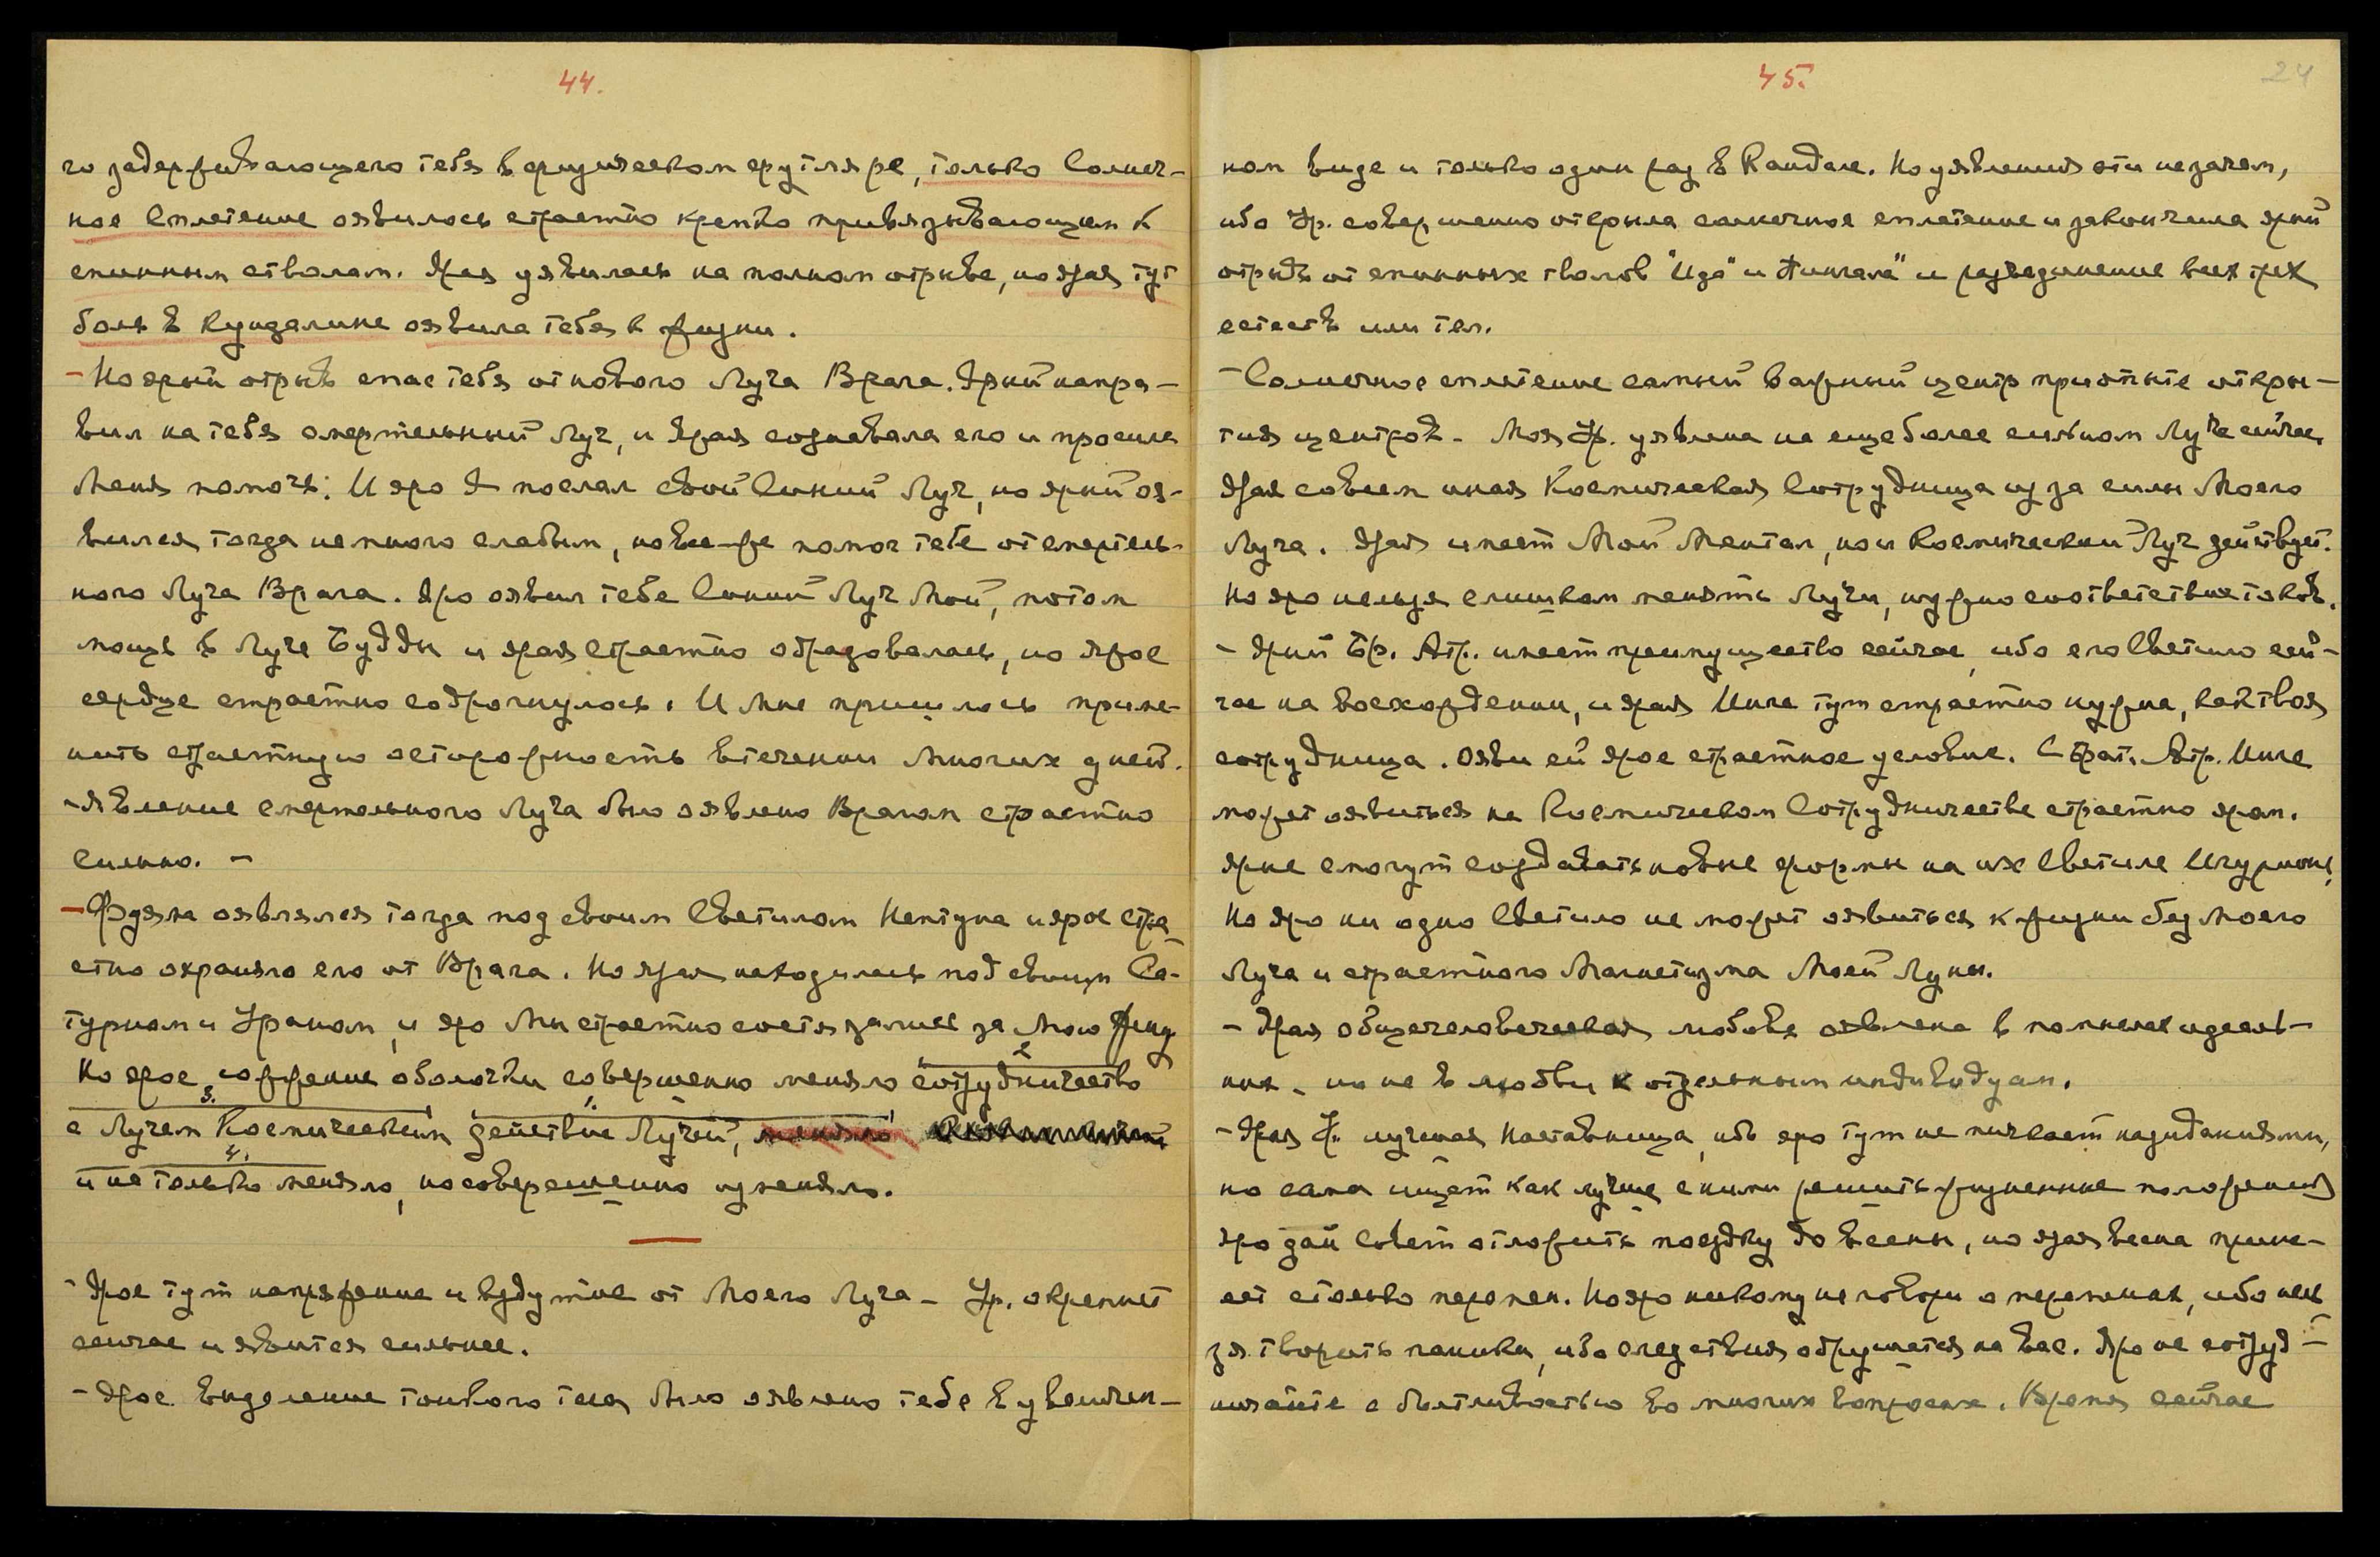 44.
го задерживающего тебя в физическом футляре, только Солнеч-
ное Сплетение оявилось страстно крепко привязывающим к
спинным стволам. Ярая уявилась на полном отрыве, но ярая тут
боль в Кундалини оявила тебя к жизни.
- Но ярый отрыв спас тебя от нового Луча Врага. Ярый напра-
вил на тебя смертельный Луч, и Ярая сознавала его и просила
Меня помочь: И яро Я послал свой Синий Луч, но ярый оя-
вился тогда немного слабым, но все-же помог тебе от смертель-
ного Луча Врага. Яро оявил тебе Синий Луч Мой, потом
мощь в Луче Будды и ярая страстно обрадовалась, но ярое
сердце страстно содрогнулось. И Мне пришлось приме-
нить страстную осторожность в течении многих дней.
- Явление смертельного Луча было оявлено Врагом страстно
сильно. -
- Фуяма оявлялся тогда под своим Светилом Нептуна и ярое стра-
стно охраняло его от Врага. Но Ярая находилась под своим Са-
турном и Ураном, и яро Мы страстно состязались за Мою Жену
2
Но ярое сожжение оболочки совершенно меняло сотрудничество
3.
с Лучем Космическим действие Лучей, меняло
4.
и не только меняло, но совершенно изменяло.
- Ярое тут напряжение и вздутие от Моего Луча - Ур. окрепнет
сейчас и явится сильнее.
- Ярое выделение тонкого тела было оявлено тебе в увеличен-
45. 24
ном виде и только один раз в Кандале. Но уявления эти не зачем,
ибо Ур. совершенно открыла солнечное сплетение и закончила ярый
отрыв от спинных стволов "Ида" и "Пингала" и разъединение всех трех
естеств или тел.
- Солнечное сплетение самый важный центр при опыте откры-
тия центров - Моя Ур. уявлена на еще более сильном Луче сейчас,
Ярая совсем иная Космическая Сотрудница из за силы Моего
Луча. Ярая имеет Мой Ментал, но и Космический Луч действует.
Но яро нельзя слишком менять Лучи, нужно соответствие токов.
- Ярый Бр. Атр. имеет преимущество сейчас, ибо его Светило сей-
час на восхождении, и ярая Инге тут страстно нужна, как твоя
сотрудница. Ояви ей ярое страстное условие. С Брат. Атр. Инге
может оявиться на Космическом Сотрудничестве страстно яром.
Ярые смогут создавать новые формы на их Светиле
Но яро ни одно Светило не может оявиться к жизни без Моего
Луча и страстного Магнетизма Моей Луны.
- Ярая общечеловеческая любовь оявлена в полном идеаль-
ная - но не в любви к отдельным индивидуам.
- Ярая Ур. лучшая Наставница, ибо яро тут не пичкает назиданиями,
но сама ищет как лучше с ними решить жизненные положения
Яро дай Совет отложить поездку до весны, но ярая весна прине-
сет столько перемен. Но яро никому не говори о переменах, ибо нель
зя творить паники, ибо следствия обрушатся на вас. Яро не сотруд-
ничайте с болтливостью во многих вопросах. Время сейчас